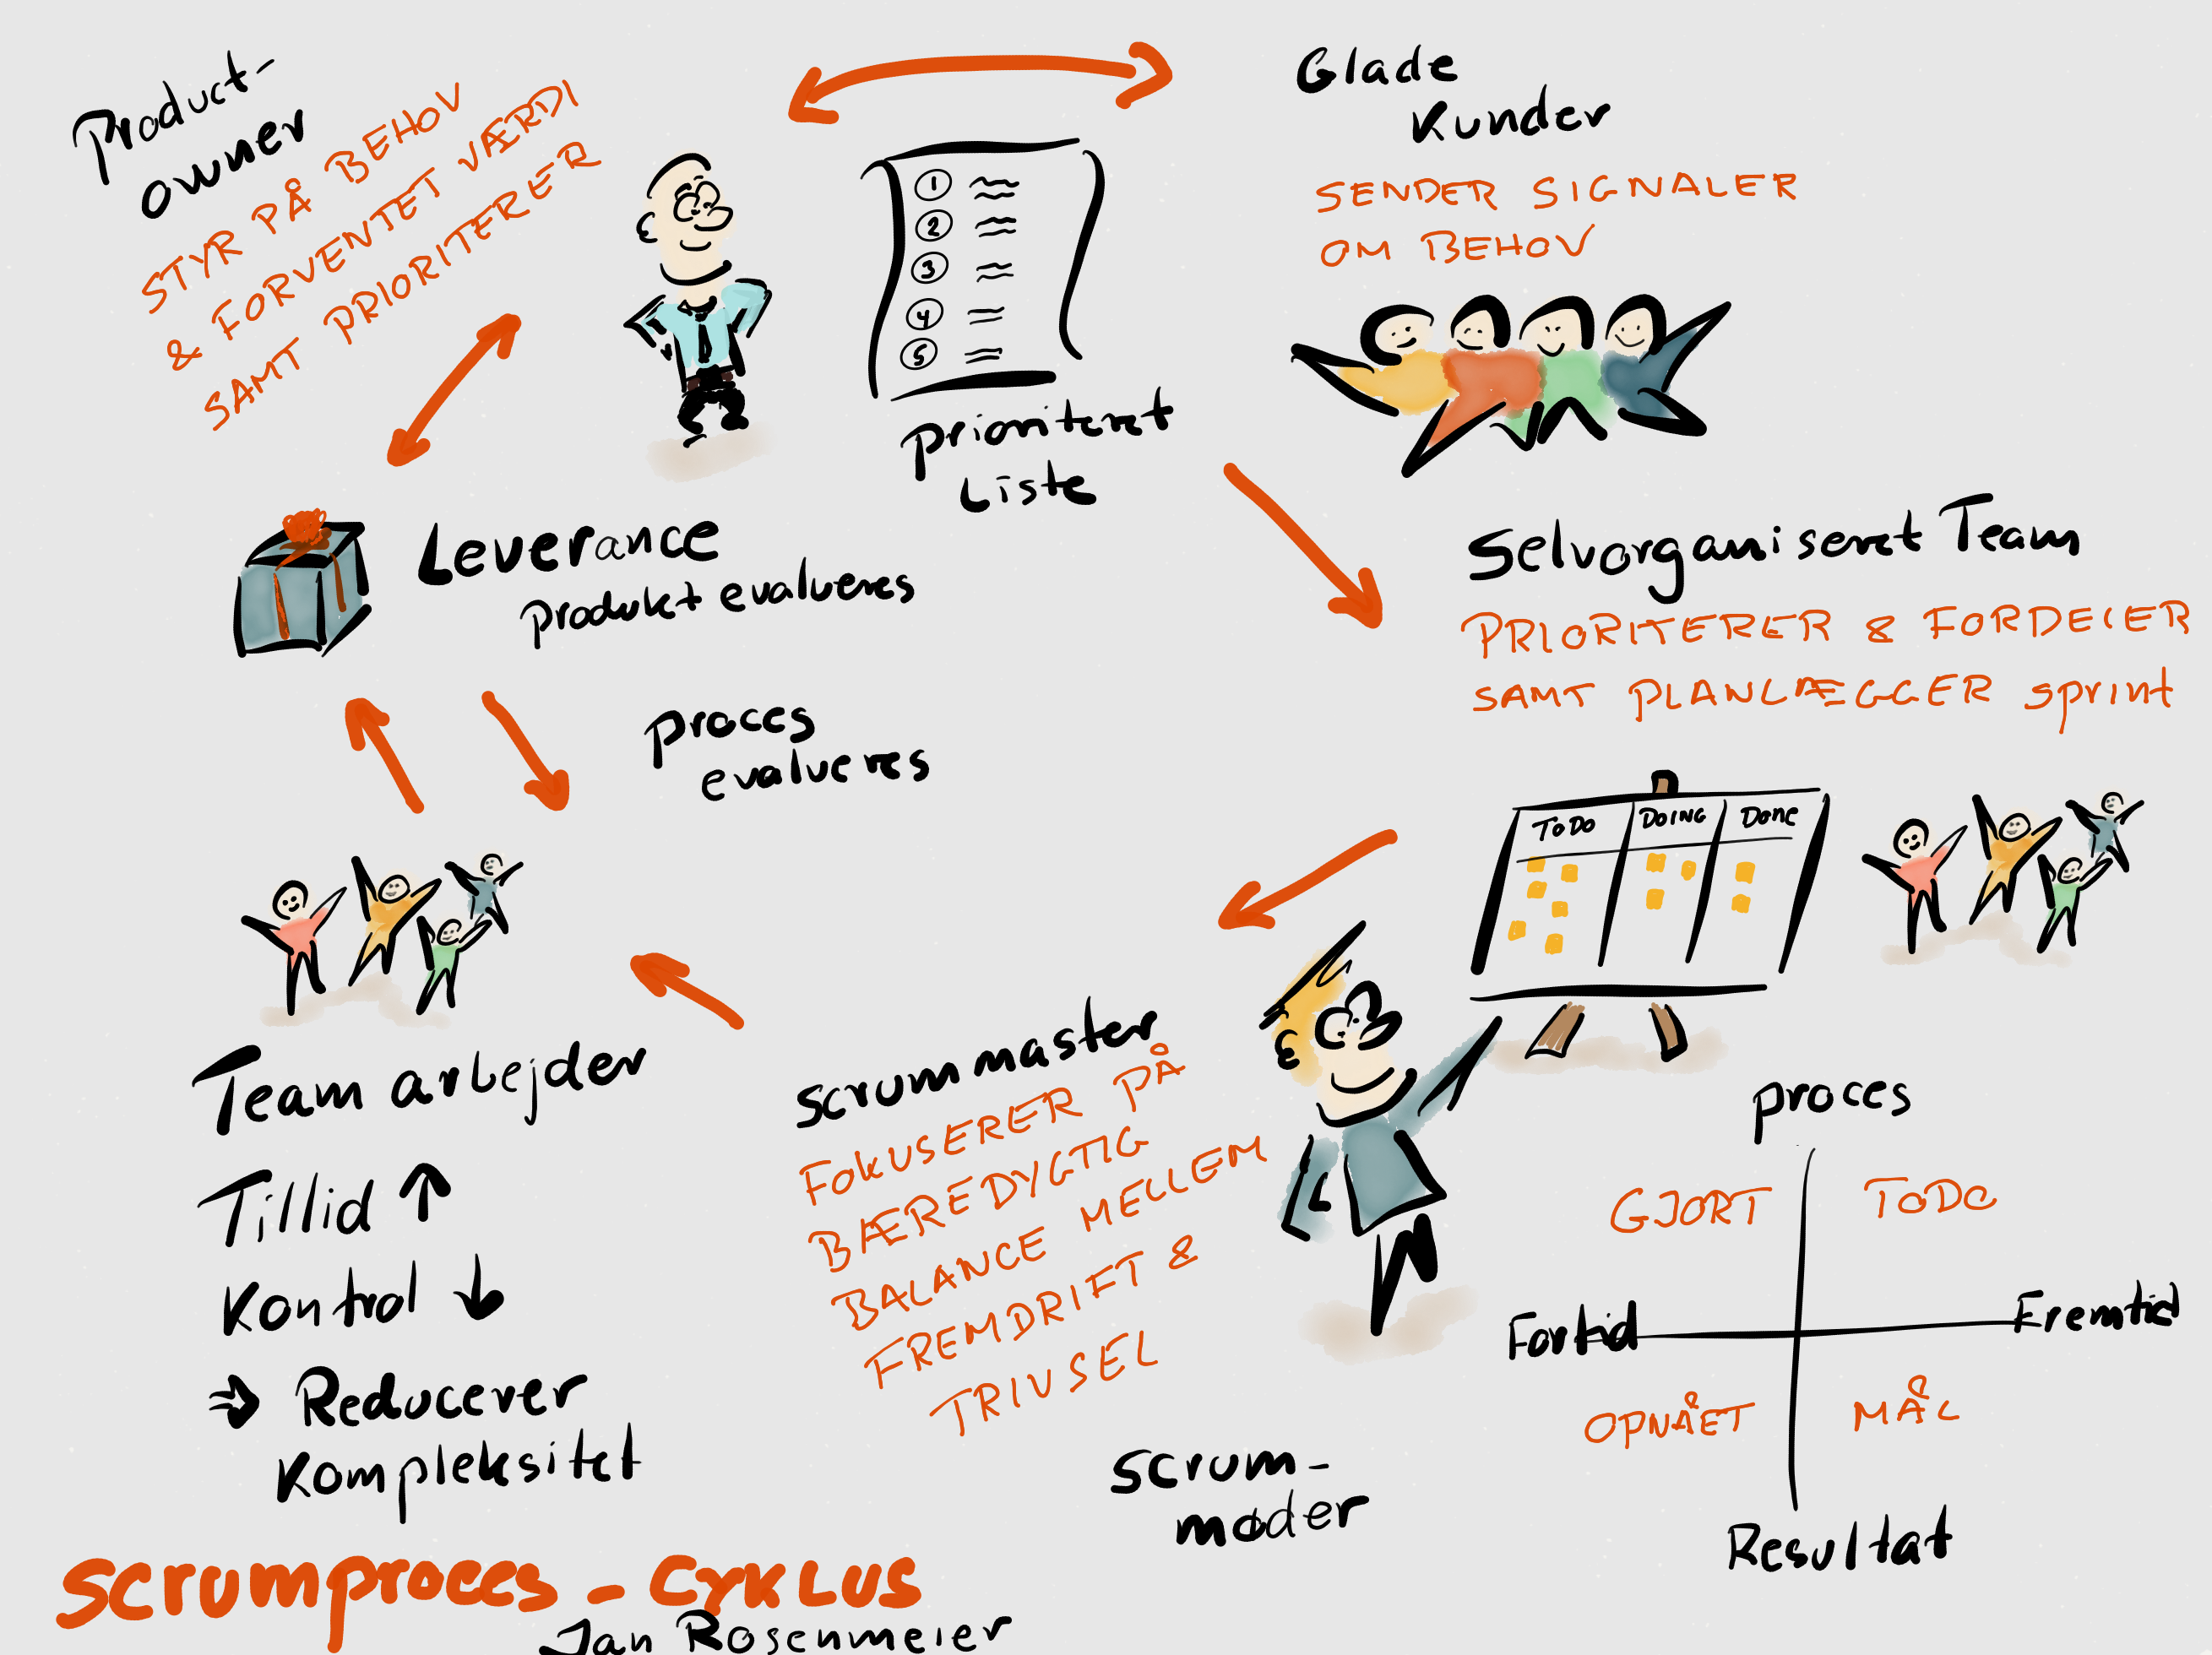 Product-
owner
STYR PÅ BEHOV
& FORVENTET VÆRDI
SAMT PRIORITERER
1
2
3
4
5
Prioriteret
Liste
Glade
Kunder
SENDER SIGNALER
OM BEHOV
Leverance
Produkt evalueres
Proces
evalueres
Selvorganiseret Team
PRIORITERER & FORDELER
SAMT PLANLÆGGER sprint
TODO DOING DONE
Team arbejder
Tillid ↑
Kontrol ↓
⇒ Reducerer
Kompleksitet
scrummaster
FOKUSERER PÅ
BÆREDYGTIG
BALANCE MELLEM
FREMDRIFT &
TRIVSEL
scrum-
møder
Proces
GJORT TODO
Fortid Fremtid
OPNÅET MÅL
Resultat
Scrumproces - Cyklus
Jan Rosenmeier